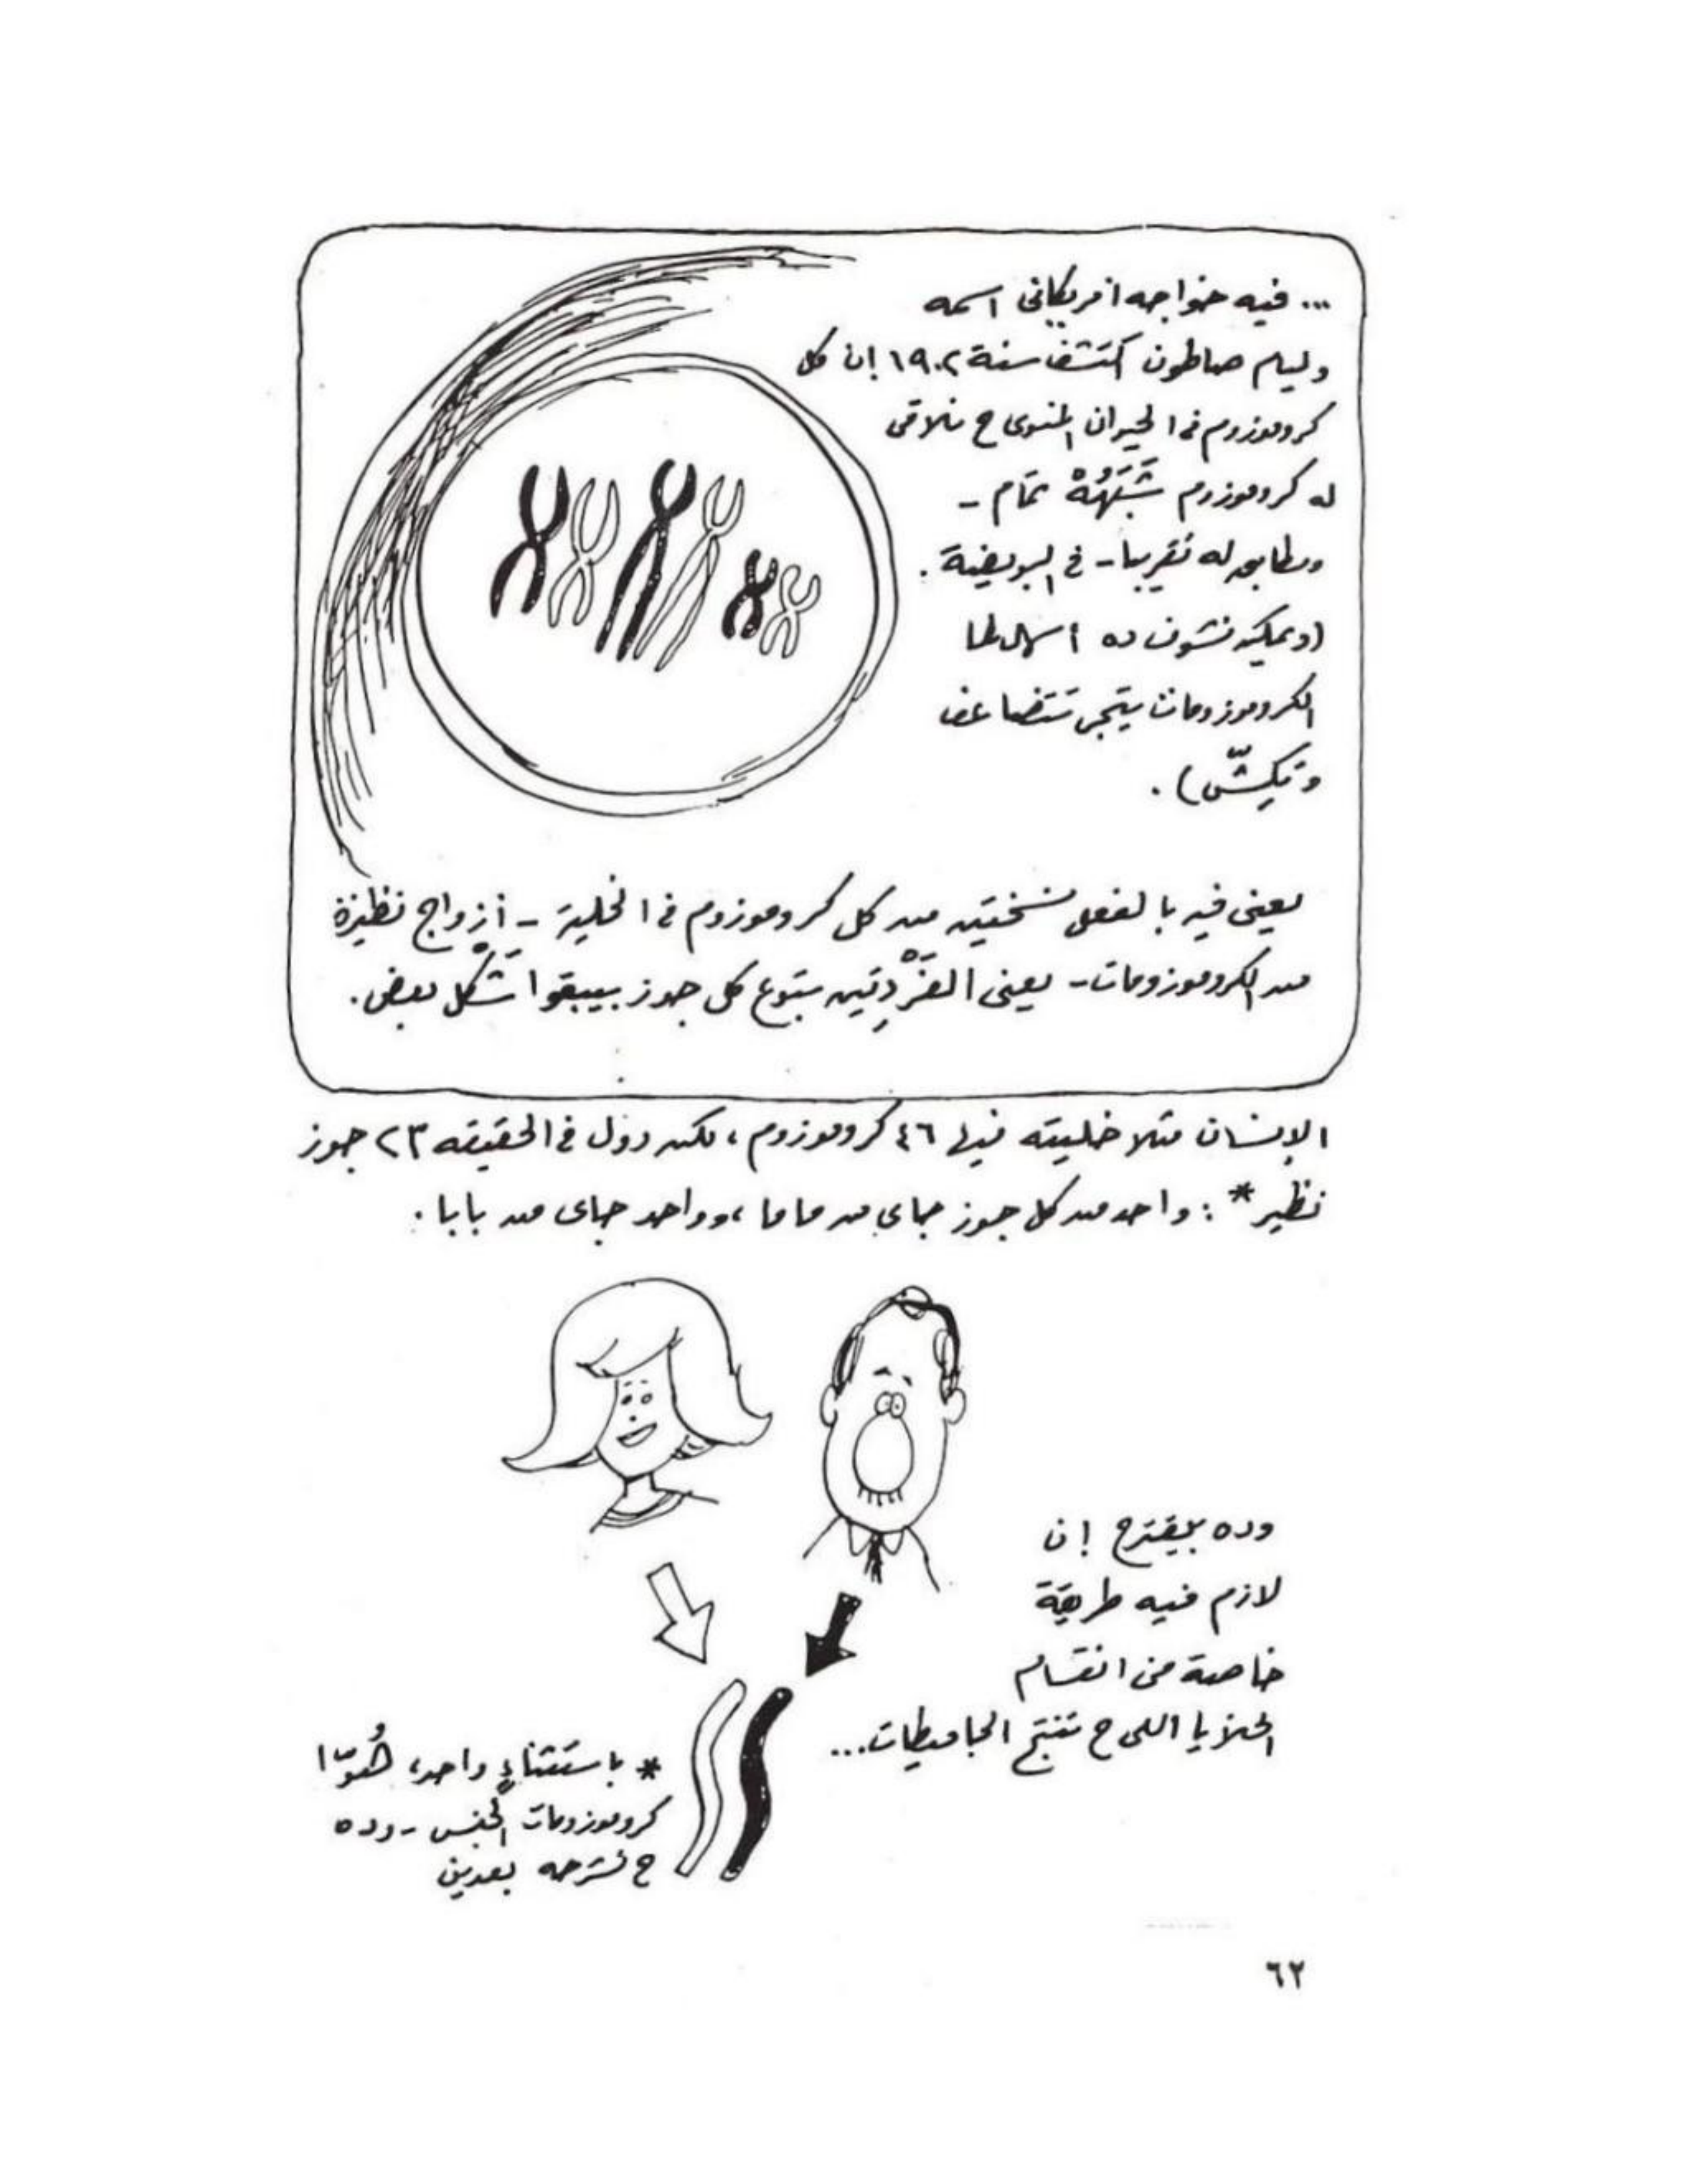 ... فيه خواجه أمريكانى اسمه
وليام صاطون اكتشف سنة ١٩٠٢ إن كل
كروموزوم فى الحيوان المنوى ح نلاقى
له كروموزوم شَبَهُهْ تمام -
ومطابق له تقريبا - فى البويضة .
(ويمكن نشوف ده أسهل لما
الكروموزومات بتيجى تتضاعف
وتكِشّ) .
يعنى فيه بالفعل نسختين من كل كروموزوم فى الخلية - أزواج نظيرة
من الكروموزومات - يعنى الفَرْدِتين بتوع كل جوز بيبقوا شَكْل بعض .
الإنسان مثلا خليته فيها ٤٦ كروموزوم ، لكن دول فى الحقيقه ٢٣ جوز
نظير * : واحد من كل جوز جاى من ماما ، وواحد جاى من بابا .
وده بيقترح إن
لازم فيه طريقة
خاصة فى انقسام
الخلايا اللى ح تنتج الجاميطات...
* باستثناءٍ واحد، هُوّا
كروموزومات الجنس - وده
ح نشرحه بعدين
٦٢